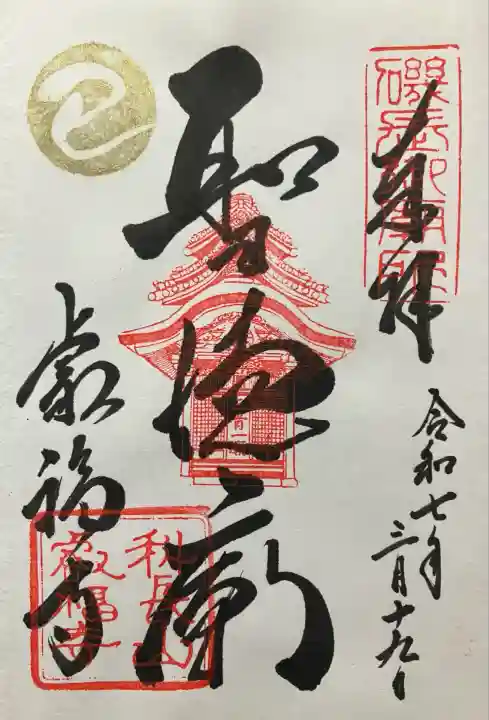 磯長御廟所
奉拝
令和七年
三月十九日
聖徳廟
叡福寺
科長山
叡福寺
巳